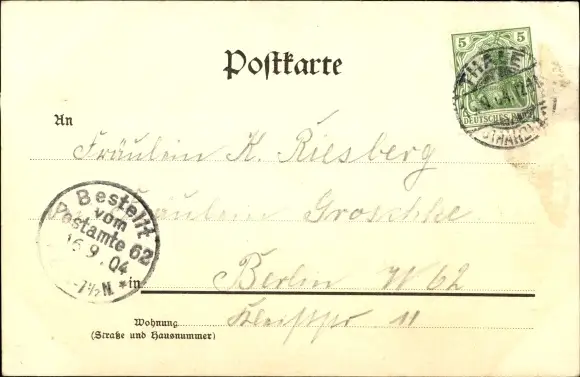 Postkarte
5 5
DEUTSCHES REICH
THALE
(HARZ)
An
Fräulein K. Riesberg
Fräulein Groschke
Bestellt
vom
Postamte 62
16.9.04
-1½N.*
in Berlin W 62
Wohnung
(Straße und Hausnummer)
11